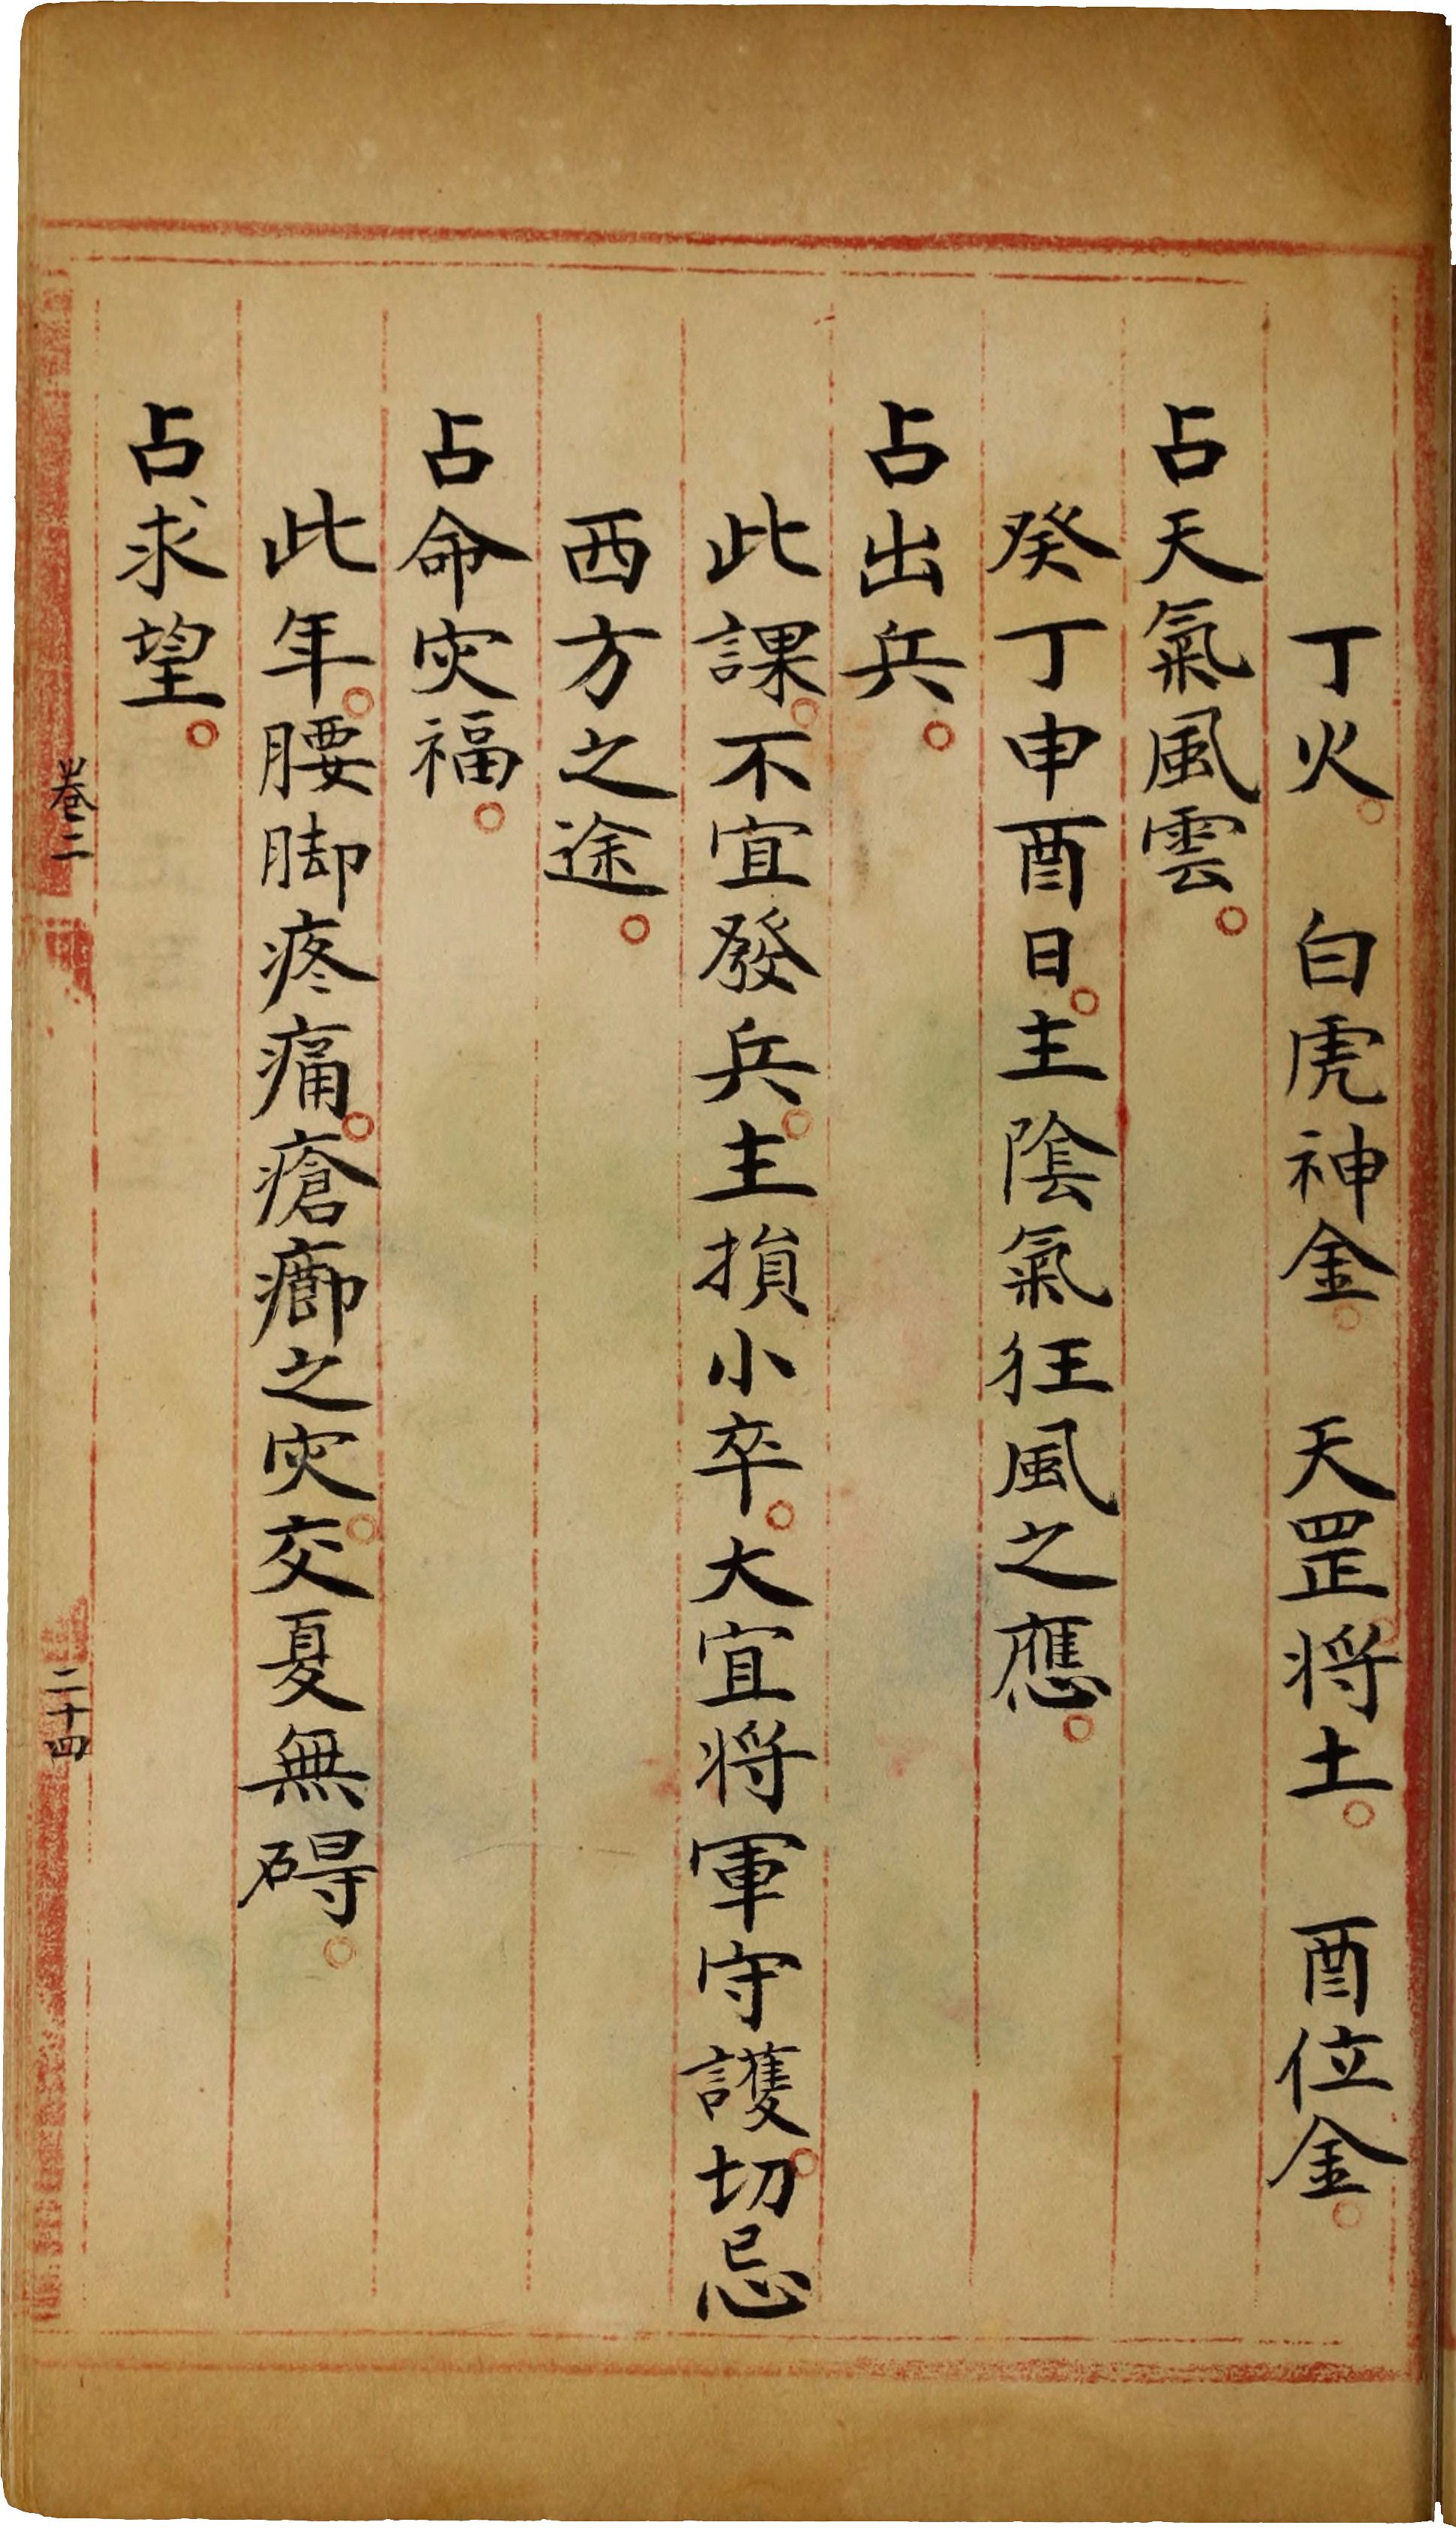 丁火。 白虎神金。 天罡将土。 酉位金。
占天氣風雲。
癸丁申酉日。主陰氣狂風之應。
占出兵。
此課。不宜發兵。主損小卒。大宜将軍守護。切忌
西方之途。
占命灾福。
此年。腰脚疼痛。瘡癤之灾。交夏無碍。
占求望。
卷二
二十四